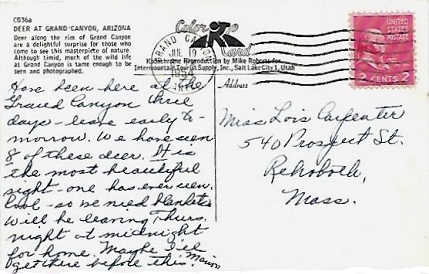 C836a
DEER AT GRAND CANYON, ARIZONA
Deer along the rim of Grand Canyon
are a delightful surprise for those who
come to see this masterpiece of nature.
Although timid, much of the wild life
at Grand Canyon is tame enough to be
seen and photographed.
Color Card
Kodachrome Reproduction by Mike Roberts for
Intermountain Tourist Supply, Inc., Salt Lake City 1, Utah
GRAND CANYON
JUL 19
1954
ARIZ.
UNITED STATES POSTAGE
2 CENTS 2
Address
Have been here at the
Grand Canyon three
days - leave early to-
morrow. We have seen
8 of these deer. It is
the most beautiful
sight - one has ever seen.
Cool - so we need blankets
Will be leaving Thurs.
night at midnight
for home. Maybe I'll
get there before this. Marion
Miss Lois Carpenter
540 Prospect St.
Rehoboth,
Mass.